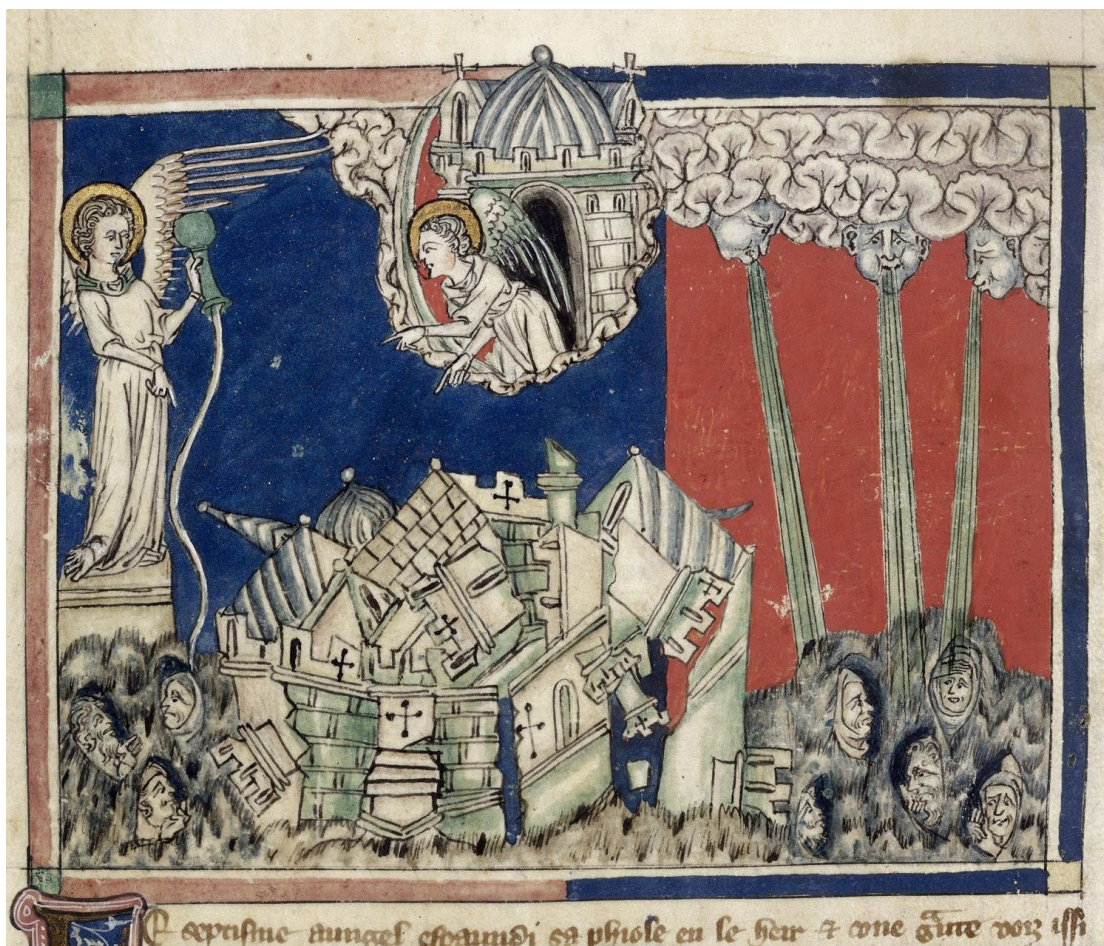 Le septisme aungel espaundi sa phiole en le heir & une graute voiz issi